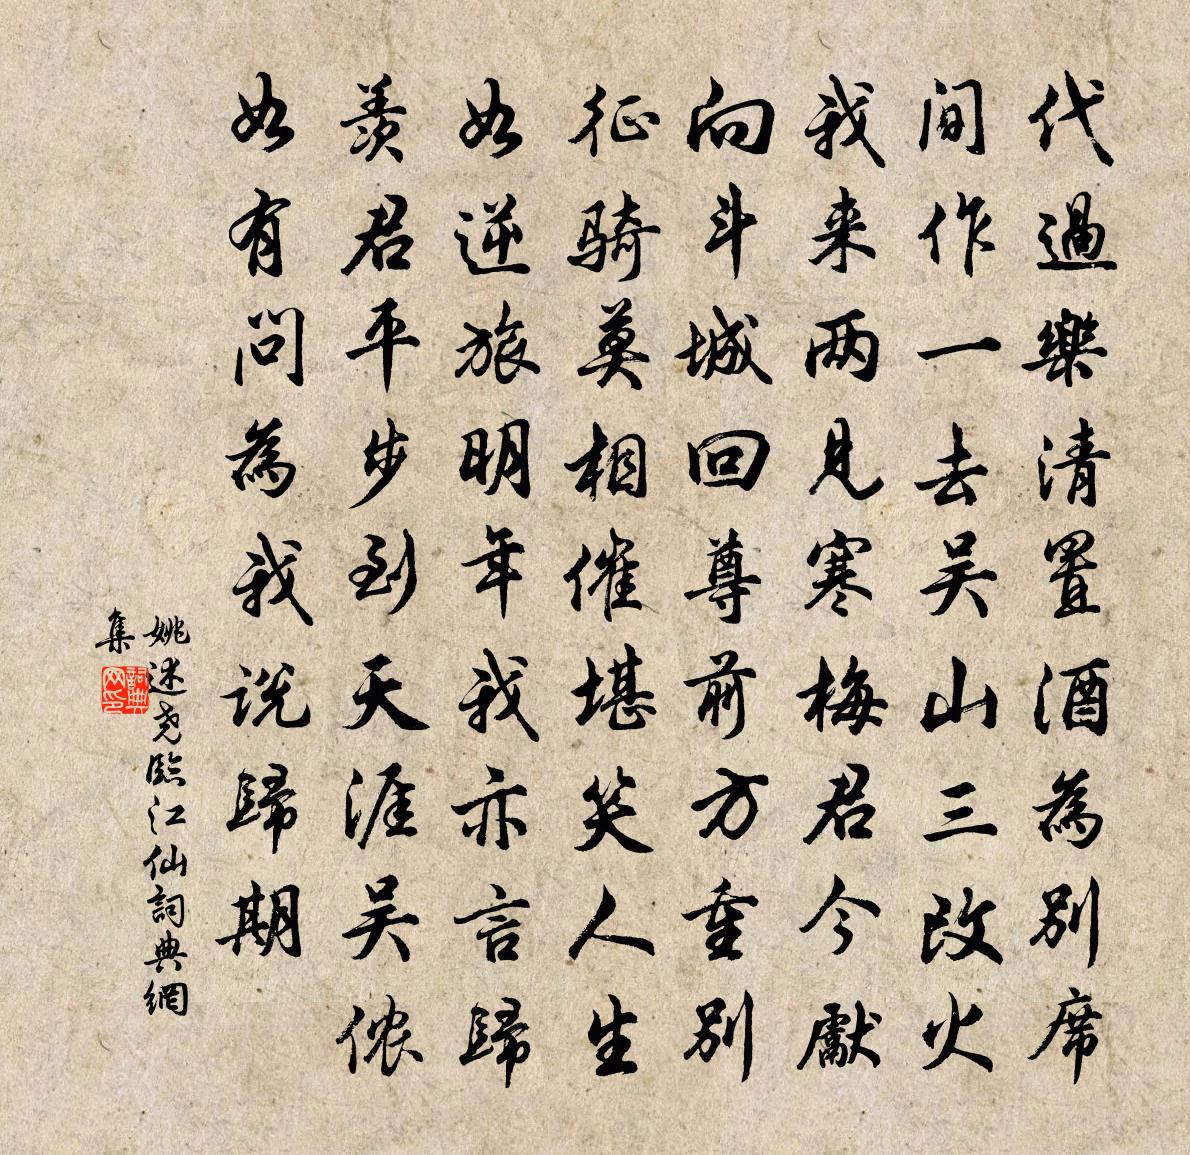 代過樂清置酒為別席
間作一去吴山三改火
我来两見寒梅君今獻
向斗城回尊前方重别
征骑莫相催堪笑人生
如逆旅明年我亦言歸
羨君平步到天涯吴侬
如有问為我说歸期
姚述尧臨江仙詞典網
集
詞典网印